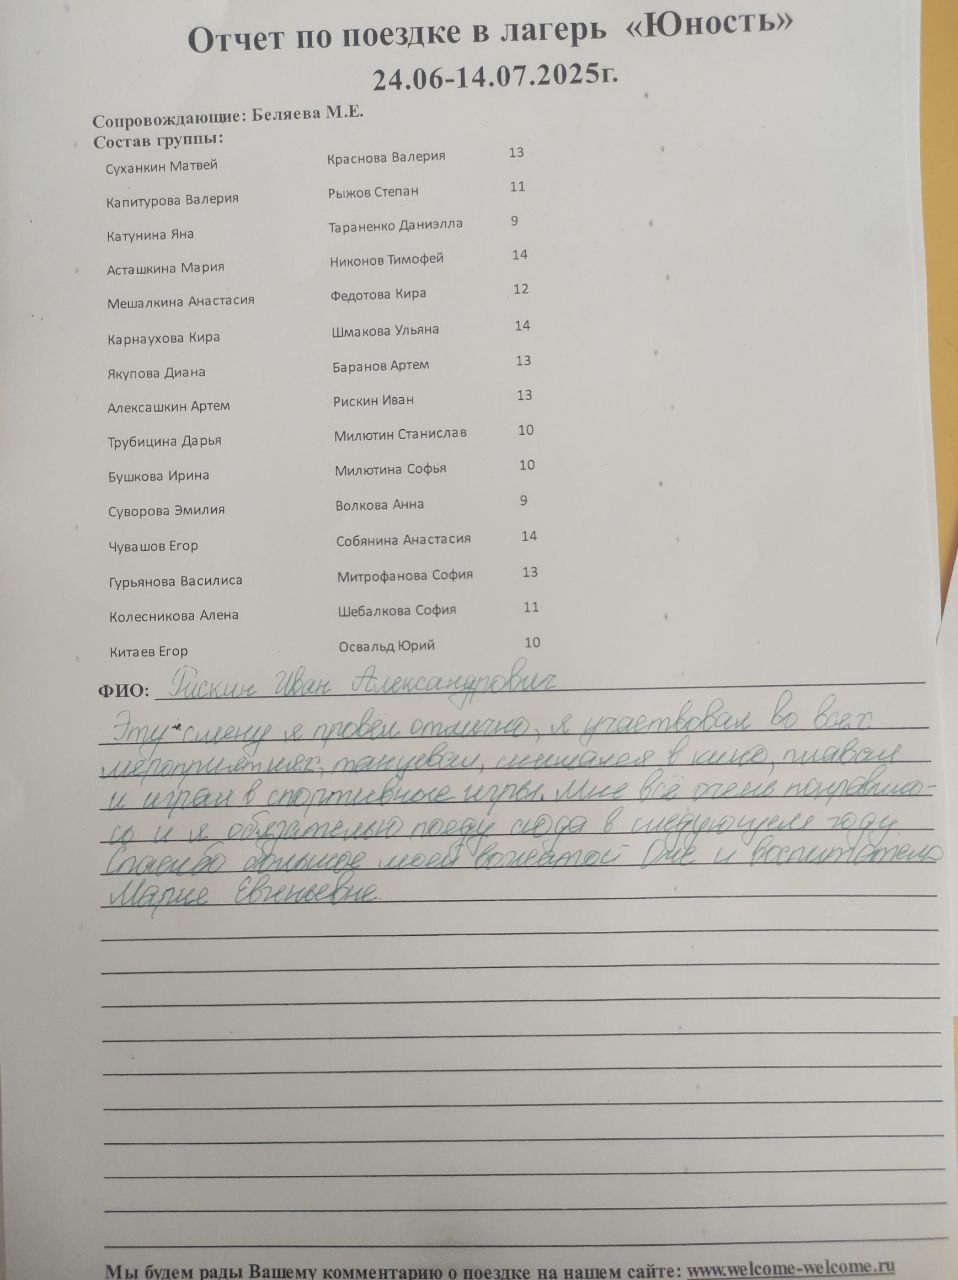 Отчет по поездке в лагерь «Юность»
24.06-14.07.2025г.
Сопровождающие: Беляева М.Е.
Состав группы:
Суханкин Матвей Краснова Валерия 13
Капитурова Валерия Рыжов Степан 11
Катунина Яна Тараненко Даниэлла 9
Асташкина Мария Никонов Тимофей 14
Мешалкина Анастасия Федотова Кира 12
Карнаухова Кира Шмакова Ульяна 14
Якупова Диана Баранов Артем 13
Алексашкин Артем Рискин Иван 13
Трубицина Дарья Милютин Станислав 10
Бушкова Ирина Милютина Софья 10
Суворова Эмилия Волкова Анна 9
Чувашов Егор Собянина Анастасия 14
Гурьянова Василиса Митрофанова София 13
Колесникова Алена Шебалкова София 11
Китаев Егор Освальд Юрий 10
ФИО: Рискин Иван Александрович
Эту смену я провёл отлично, я участвовал во всех
мероприятиях, танцевал, снимался в кино, плавал
и играл в спортивные игры. Мне всё очень понравило-
сь и я обязательно поеду сюда в следующем году.
Спасибо большое моей вожатой Оле и воспитателю
Марие Евгеньевне
Мы будем рады Вашему комментарию о поездке на нашем сайте: www.welcome-welcome.ru